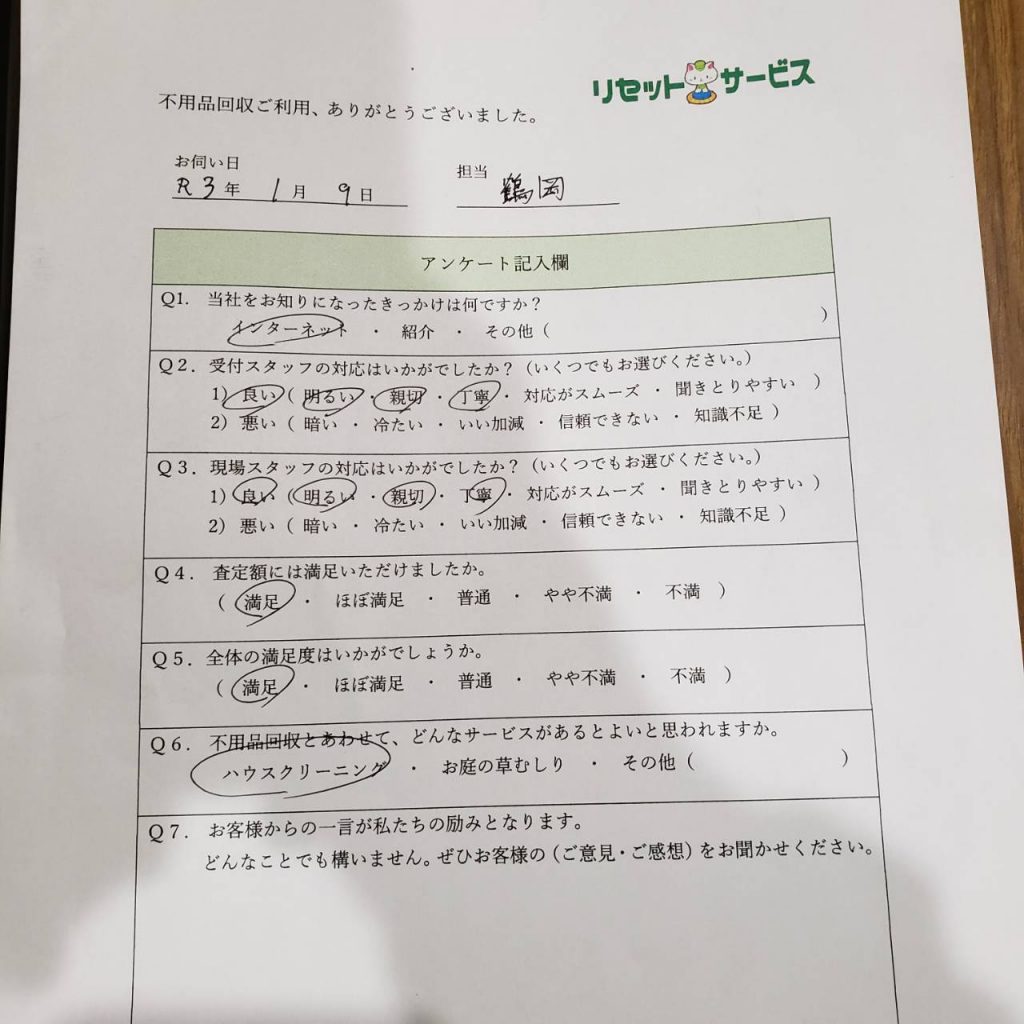 リセットサービス
不用品回収ご利用、ありがとうございました。
お伺い日 担当
R3年 1月 9日 鶴岡
アンケート記入欄
Q1. 当社をお知りになったきっかけは何ですか?
インターネット ・ 紹介 ・ その他( )
Q2. 受付スタッフの対応はいかがでしたか?(いくつでもお選びください。)
1) 良い( 明るい ・ 親切 ・ 丁寧 ・ 対応がスムーズ ・ 聞きとりやすい )
2) 悪い( 暗い ・ 冷たい ・ いい加減 ・ 信頼できない ・ 知識不足 )
Q3. 現場スタッフの対応はいかがでしたか?(いくつでもお選びください。)
1) 良い( 明るい ・ 親切 ・ 丁寧 ・ 対応がスムーズ ・ 聞きとりやすい )
2) 悪い( 暗い ・ 冷たい ・ いい加減 ・ 信頼できない ・ 知識不足 )
Q4. 査定額には満足いただけましたか。
( 満足 ・ ほぼ満足 ・ 普通 ・ やや不満 ・ 不満 )
Q5. 全体の満足度はいかがでしょうか。
( 満足 ・ ほぼ満足 ・ 普通 ・ やや不満 ・ 不満 )
Q6. 不用品回収とあわせて、どんなサービスがあるとよいと思われますか。
ハウスクリーニング ・ お庭の草むしり ・ その他( )
Q7. お客様からの一言が私たちの励みとなります。
どんなことでも構いません。ぜひお客様の(ご意見・ご感想)をお聞かせください。